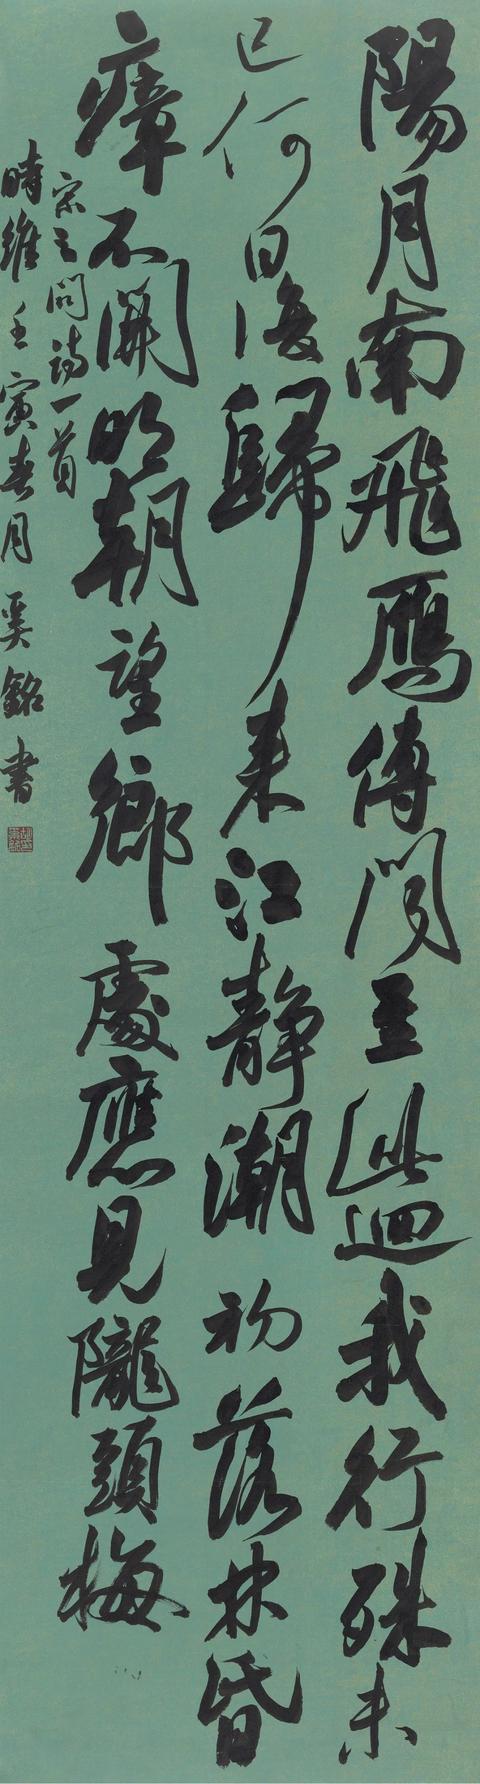 陽月南飛雁傳聞至此迴我行殊未
已何日復歸來江静潮初落林昏
瘴不開明朝望鄉處應見隴頭梅
宗之問詩一首
時維壬寅春月奚銘書